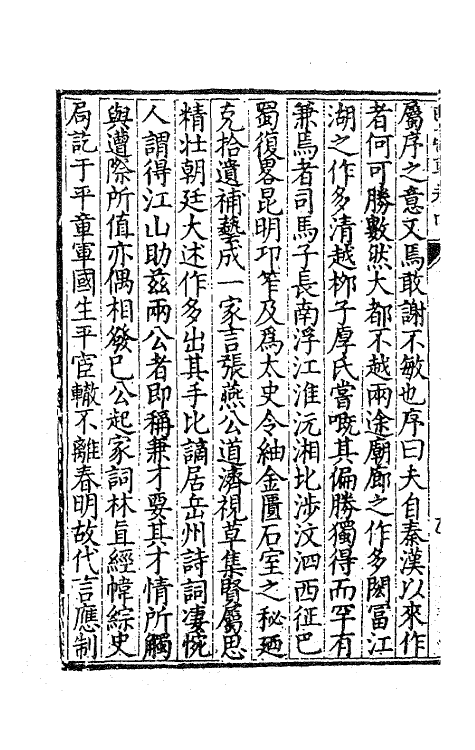 屬序之意又焉敢謝不敏也序曰夫自秦漢以來作
者何可勝數然大都不越兩途廟廊之作多閎富江
湖之作多清越柳子厚氏嘗嘅其偏勝獨得而罕有
兼焉者司馬子長南浮江淮沅湘北涉汶泗西征巴
蜀復畧昆明卭笮及爲太史令紬金匱石室之秘廼
克拾遺補蓺成一家言張燕公道濟視草集賢屬思
精壯朝廷大述作多出其手比謫居岳州詩詞凄惋
人謂得江山助兹兩公者即稱兼才要其才情所觸
與遭際所值亦偶相發已公起家詞林直經幃綜史
局訖于平章軍國生平宦轍不離春明故代言應制